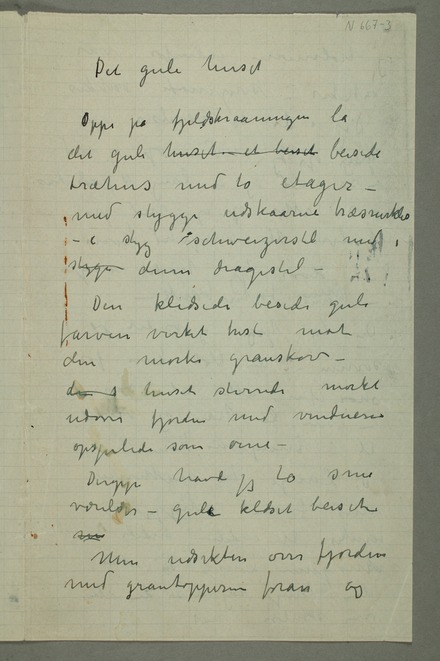 N 667-3
Det gule huset
Oppe på fjeldskraaningen la
det gule huset – et beiset beisede
træhus med to etager –
med stygge udskaarne træsnirkler
– i styg schweizerstil med
stygge denne dragestil –
Den klidsede beisede gule
farven virket trist mot
den mørke granskov –
de s huset stirrede mørkt
udover fjorden med vinduerne
opspilede som øine –
Deroppe havde jeg to små
værelser – gule beiset
Men udsikten over fjorden
med grantoppene foran og